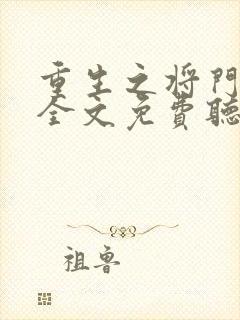 重生之将門
全文免費聽
祖魯